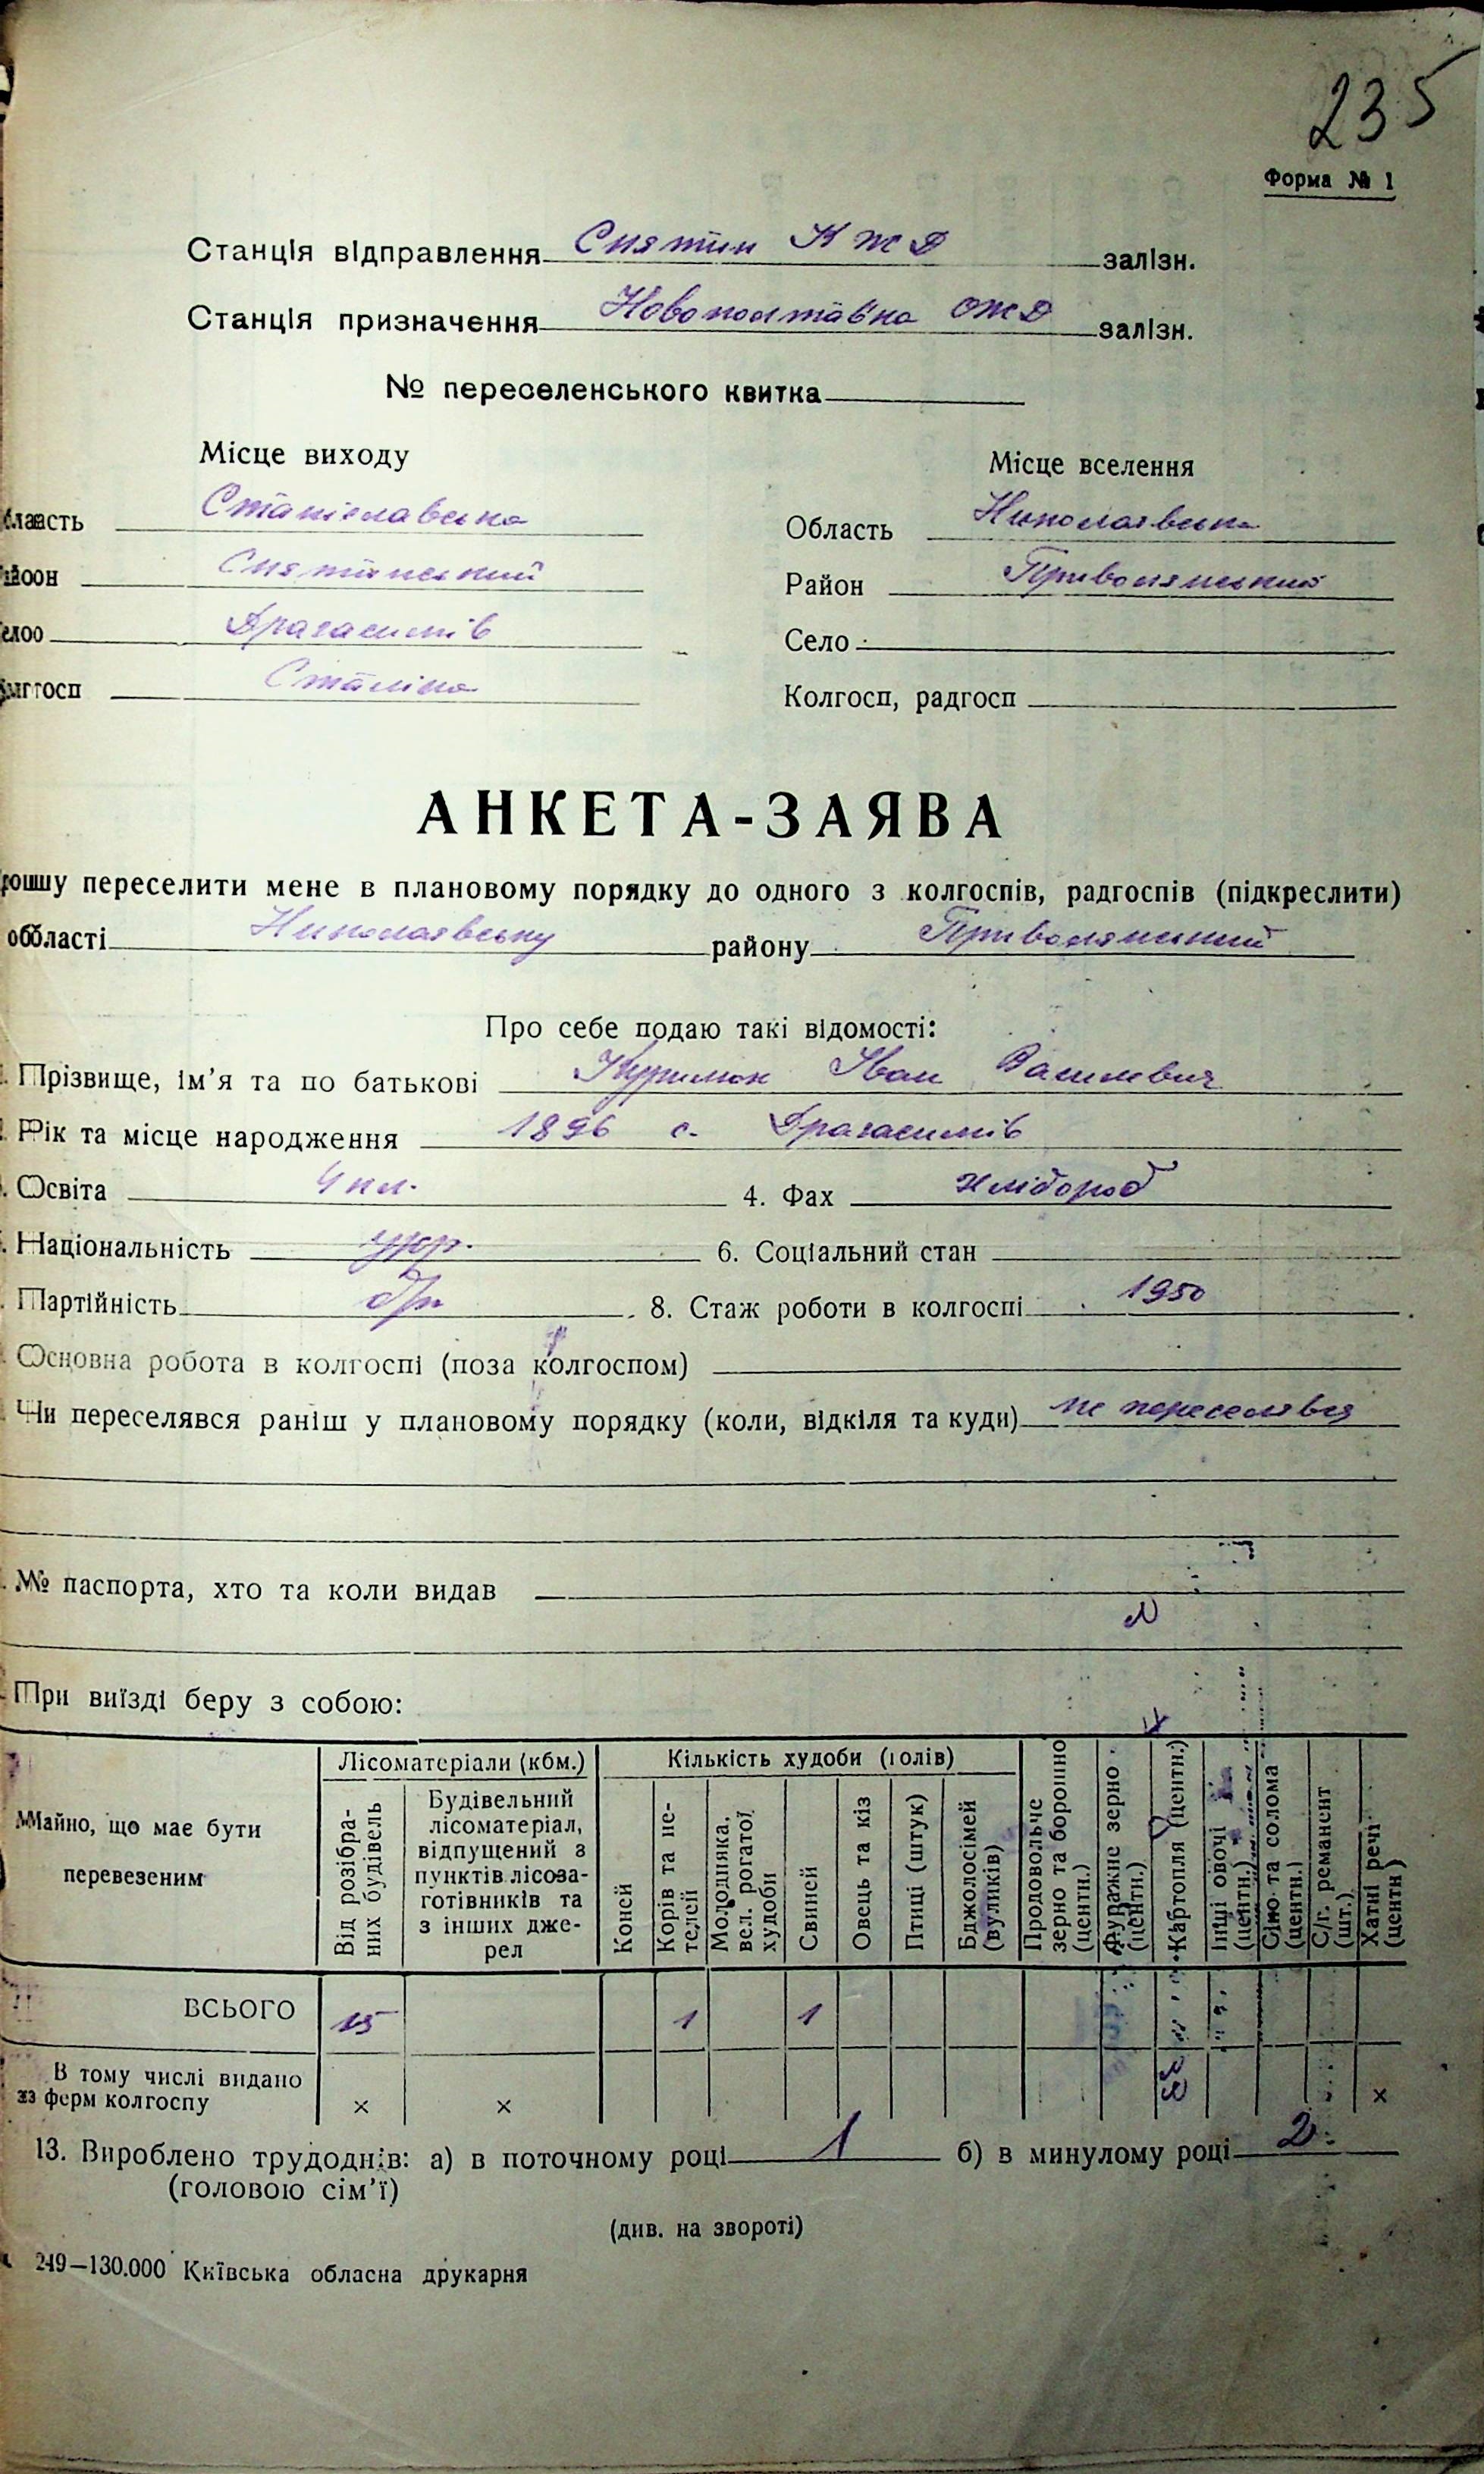 235
Форма № 1
Станція відправлення Снятин К Ж Д залізн.
Станція призначення Новополтавка ОЖД залізн.
№ переселенського квитка
Місце виходу
Місце вселення
Область Станіславська
Область Николаявська
Район Снятинський
Район Привольянський
Село Драгасимів
Село
Колгосп Сталіна
Колгосп, радгосп
АНКЕТА-ЗАЯВА
Прошу переселити мене в плановому порядку до одного з колгоспів, радгоспів (підкреслити)
області Николаявську району Привольянський
Про себе подаю такі відомості:
Прізвище, ім’я та по батькові Іван Васильович
Рік та місце народження 1896 с. Драгасимів
Освіта 4 кл. 4. Фах хлібороб
Національність укр. 6. Соціальний стан
Партійність б/п 8. Стаж роботи в колгоспі 1950
Основна робота в колгоспі (поза колгоспом)
Чи переселявся раніш у плановому порядку (коли, відкіля та куди) не переселявся
№ паспорта, хто та коли видав
При виїзді беру з собою:
Майно, що має бути перевезеним
Лісоматеріали (кбм.)
Кількість худоби (голів)
Від розібраних будівель
Будівельний лісоматеріал, відпущений з пунктів лісозаготівників та з інших джерел
Коней
Корів та нетелей
Молодняка, вел. рогатої худоби
Свиней
Овець та кіз
Птиці (штук)
Бджолосімей (вуликів)
Продовольче зерно та борошно (центн.)
Фуражне зерно (центн.)
Картопля (центн.)
Інші овочі (центн.)
Сіно та солома (центн.)
С/г. реманент (шт.)
Хатні речі (центн)
ВСЬОГО 15 1 1
В тому числі видано
з ферм колгоспу × × ×
13. Вироблено трудоднів: а) в поточному році 1 б) в минулому році 2
(головою сім’ї)
(див. на звороті)
249—130.000 Київська обласна друкарня